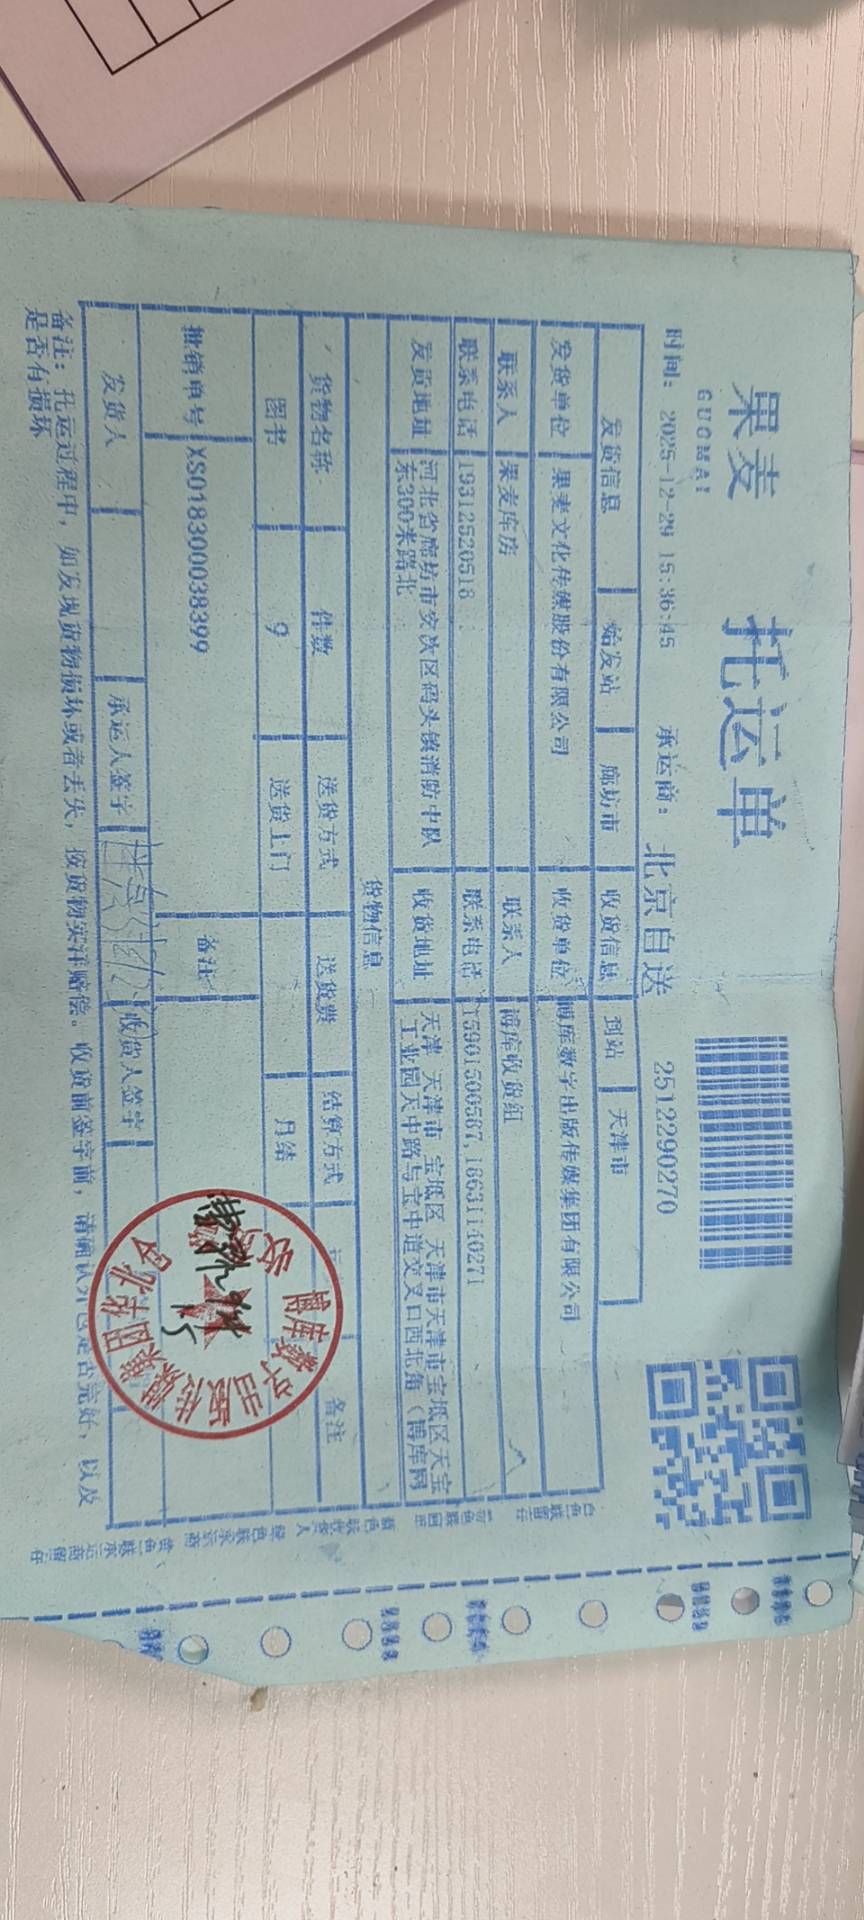 果麦
GUOMAI
托运单
时间: 2025-12-29 15:36:45 承运商: 北京自送 2512290270
发货信息 始发站 廊坊市 收货信息 到站 天津市
发货单位 果麦文化传媒股份有限公司 收货单位 博库数字出版传媒集团有限公司
联系人 果麦库房 联系人 博库收货组
联系电话 19312520518 联系电话 15901500587,18631140271
发货地址 河北省廊坊市安次区码头镇消防中队
东300米路北
收货地址 天津 天津市 宝坻区 天津市天津市宝坻区天宝
工业园天中路与宝中道交叉口西北角（博库网
货物信息
货物名称 件数 送货方式 送货费 结算方式 备注
图书 9 送货上门 月结
批销单号 XS018300038399 备注
发货人 承运人签字 收货人签字
备注: 托运过程中，如发现货物损坏或者丢失，按货物实洋赔偿。收货前签字前，请确认外包是否完好，以及
是否有损坏
博库数字出版传媒集团华北仓